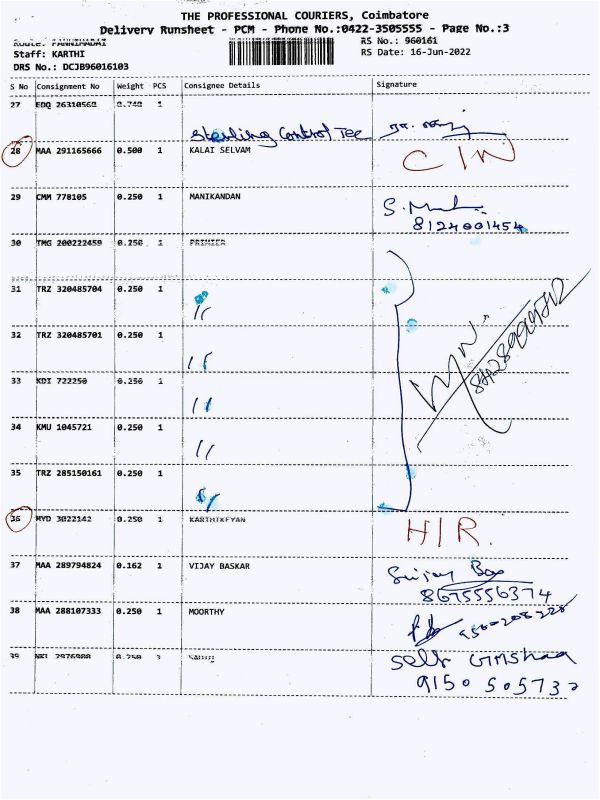 THE PROFESSIONAL COURIERS, Coimbatore
Delivery Runsheet - PCM - Phone No.:0422-3505555 - Page No.:3
Route: PANNIMADAI RS No.: 960161
Staff: KARTHI RS Date: 16-Jun-2022
DRS No.: DCJB96016103
S No Consignment No Weight PCS Consignee Details Signature
27 EDQ 26310560 0.740 1
Sterling Control Tec
28 MAA 291165666 0.500 1 KALAI SELVAM C/N
29 CMM 778105 0.250 1 MANIKANDAN
8124001454
30 TMG 200222459 0.250 1 PRIMIER
31 TRZ 320485704 0.250 1
11
32 TRZ 320485701 0.250 1
11
33 KDI 722250 0.250 1
11
34 KMU 1045721 0.250 1
11
35 TRZ 285150161 0.250 1
11
36 MYD 3022142 0.250 1 KARTHIKEYAN H/R.
37 MAA 289794824 0.162 1 VIJAY BASKAR
8675556374
38 MAA 288107333 0.250 1 MOORTHY
39 1
9150505732